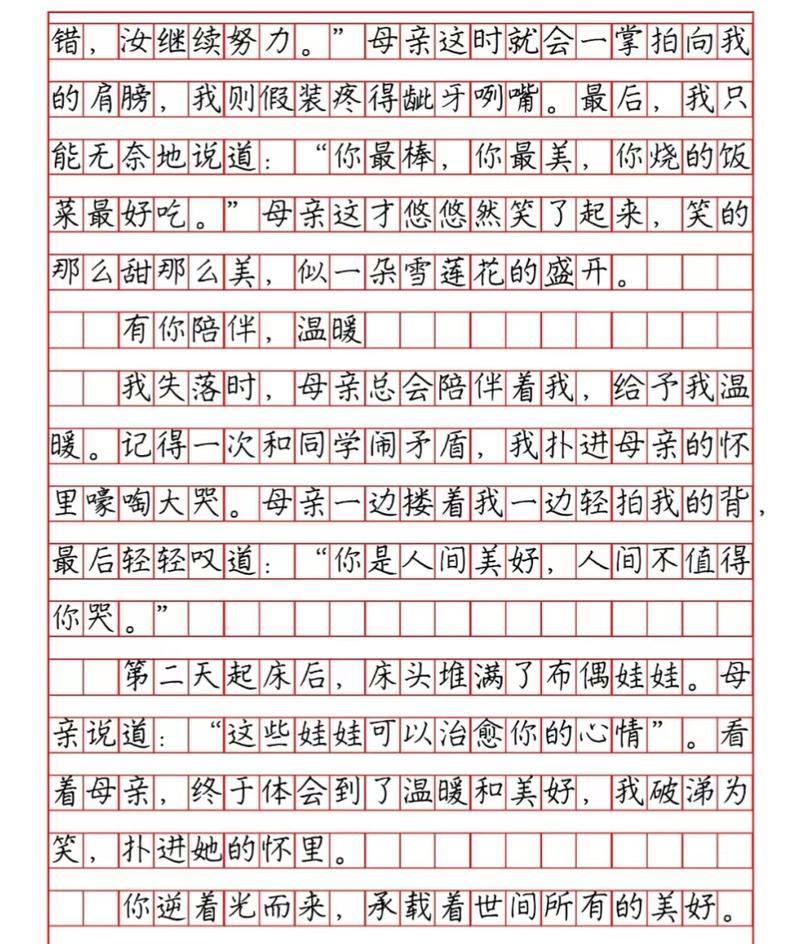 错，汝继续努力。”母亲这时就会一掌拍向我
的肩膀，我则假装疼得龇牙咧嘴。最后，我只
能无奈地说道：“你最棒，你最美，你烧的饭
菜最好吃。”母亲这才悠悠然笑了起来，笑的
那么甜那么美，似一朵雪莲花的盛开。
有你陪伴，温暖
我失落时，母亲总会陪伴着我，给予我温
暖。记得一次和同学闹矛盾，我扑进母亲的怀
里嚎啕大哭。母亲一边搂着我一边轻拍我的背，
最后轻轻叹道：“你是人间美好，人间不值得
你哭。”
第二天起床后，床头堆满了布偶娃娃。母
亲说道：“这些娃娃可以治愈你的心情”。看
着母亲，终于体会到了温暖和美好，我破涕为
笑，扑进她的怀里。
你逆着光而来，承载着世间所有的美好。